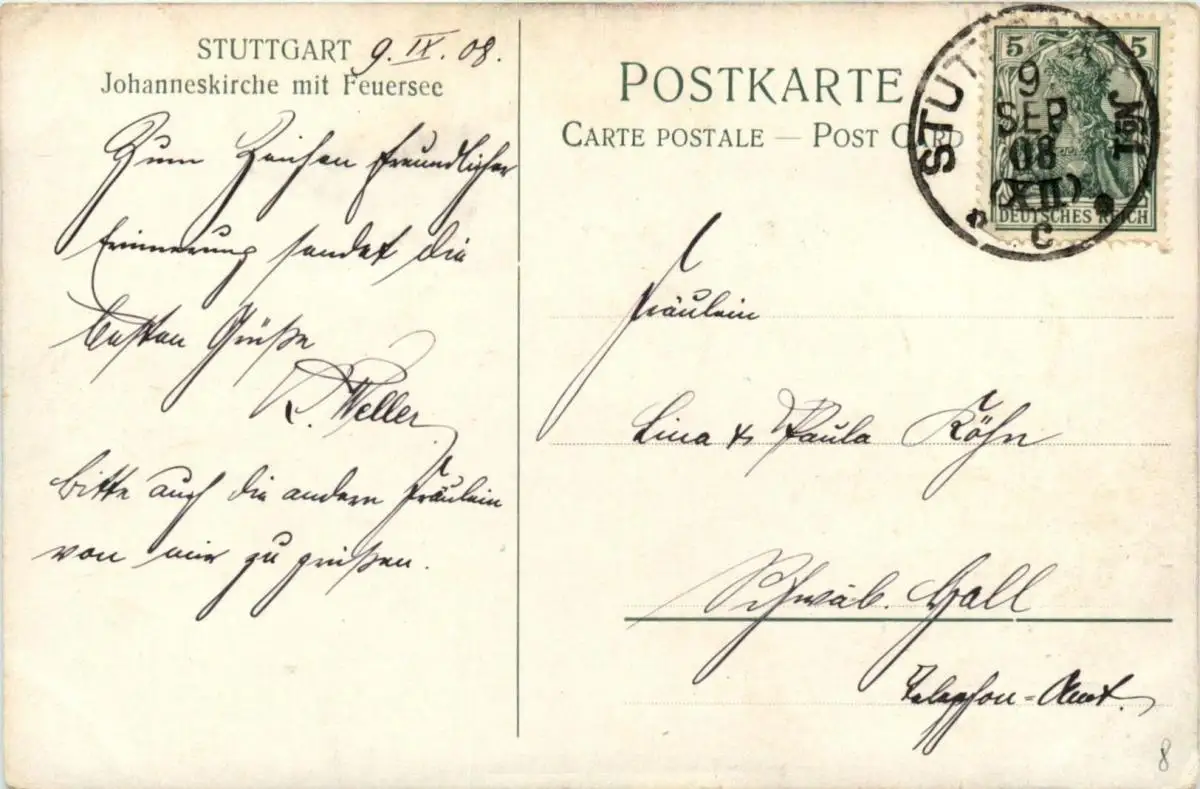 STUTTGART 9. IX. 08.
Johanneskirche mit Feuersee
Zum Zeichen freundlicher
Erinnerung sendet die
besten Grüße
R. Weller
Bitte auch die andern Fräulein
von mir zu grüßen.
POSTKARTE
CARTE POSTALE — POST CARD
5 5
DEUTSCHES REICH
STUTTGART No1
9
SEP
08
(XII)
C
Fräulein
Lina & Paula Köhn
Schwäb. Hall
Telephon-Amt.
8